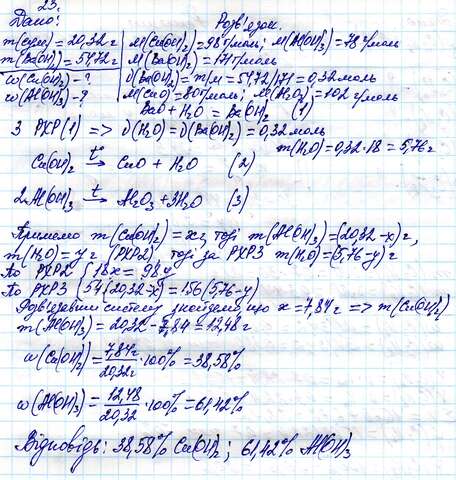 23.
Дано: Розв'язок.
m(сум) = 20,32 г M(Cu(OH)₂) = 98 г/моль; M(Al(OH)₃) = 78 г/моль
m(Ba(OH)₂) = 54,72 г M(Ba(OH)₂) = 171 г/моль
w(Cu(OH)₂) - ? ν(Ba(OH)₂) = m/M = 54,72/171 = 0,32 моль
w(Al(OH)₃) - ? M(CuO) = 80 г/моль; M(Al₂O₃) = 102 г/моль
BaO + H₂O = Ba(OH)₂ (1)
З РХР(1) => ν(H₂O) = ν(Ba(OH)₂) = 0,32 моль
m(H₂O) = 0,32·18 = 5,76 г
Cu(OH)₂ →t° CuO + H₂O (2)
2Al(OH)₃ →t Al₂O₃ + 3H₂O (3)
Приймемо m(Cu(OH)₂) = x г, тоді m(Al(OH)₃) = (20,32 - x) г,
m(H₂O) = y г (РХР2) тоді за РХР3 m(H₂O) = (5,76 - y) г
По РХР2 { 18x = 98y
По РХР3 { 54(20,32 - x) = 156(5,76 - y)
Розв'язавши систему знайдемо, що x = 7,84 г => m(Cu(OH)₂)
m(Al(OH)₃) = 20,32 - 7,84 = 12,48 г
w(Cu(OH)₂) = 7,84 г / 20,32 г · 100% = 38,58%
w(Al(OH)₃) = 12,48 / 20,32 · 100% = 61,42%
Відповідь: 38,58% Cu(OH)₂; 61,42% Al(OH)₃